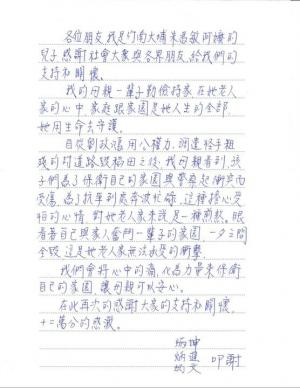 各位朋友，我是竹南大埔朱馮敏阿嬤的
兒子，感謝社會大眾與各界朋友，給我們的
支持和關懷。
我的母親一輩子勤儉持家，在她老人
家的心中，家庭跟家園是她人生的全部，
她用生命去守護。
自從劉政鴻用公權力，調遣怪手粗
殘的封道路毀稻田之後，我母親看到，孩
子們為了保衛自己的家園與警察起衝突而
受傷，為了抗爭到處奔波忙碌，這種擔心受
怕的心情，對她老人家來說是一種煎熬。眼
看著自己與家人奮鬥一輩子的家園，一夕之間
全毀，這是她老人家無法承受的衝擊。
我們會將心中的痛，化為力量來保衛
自己的家園，讓母親可以安心。
在此再次的感謝大家的支持和關懷，
十二萬分的感激。
炳坤
炳進
炳文
叩謝